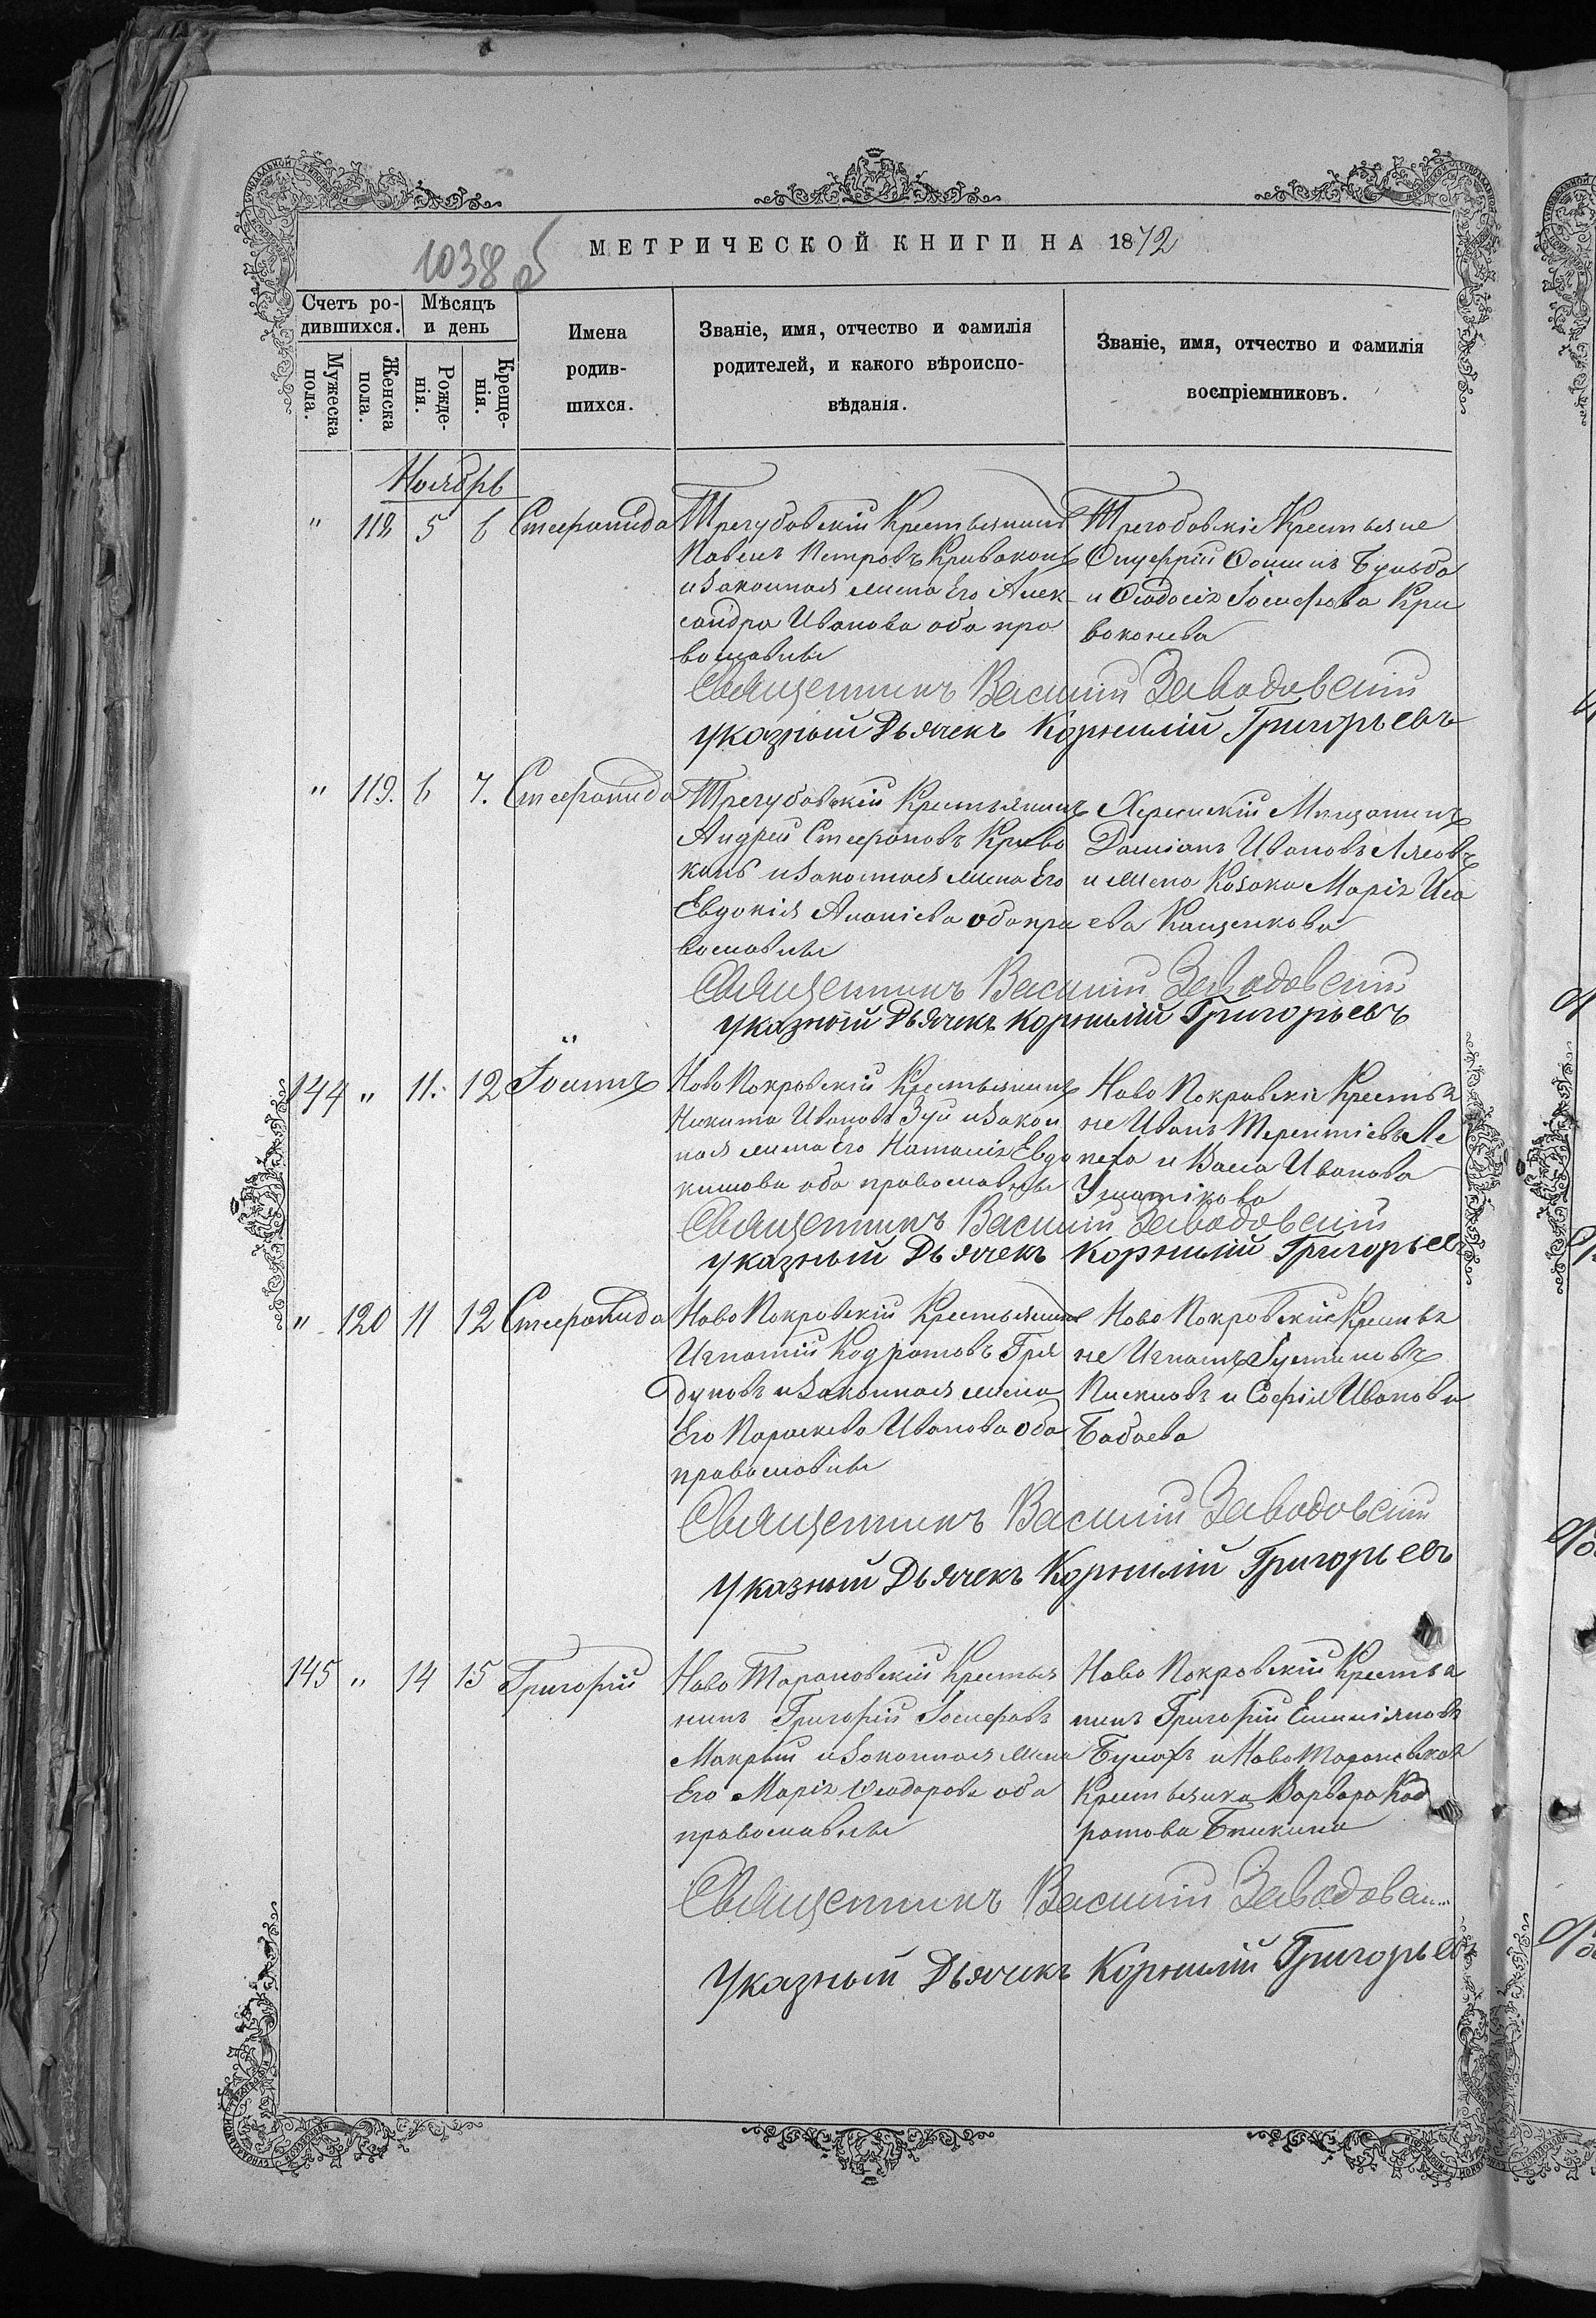 1038 об
МЕТРИЧЕСКОЙ КНИГИ НА 1872
Счетъ ро-
дившихся.
Мѣсяцъ
и день
Мужеска
пола.
Женска
пола.
Рожде-
нія.
Креще-
нія.
Имена
родив-
шихся.
Званіе, имя, отчество и фамилія
родителей, и какого вѣроиспо-
вѣданія.
Званіе, имя, отчество и фамилія
воспріемниковъ.
Ноябрь
" 118 5 6 Стефанида
Трегубовскій Крестьянинъ
Павелъ Петровъ Кривоконь
и законная жена Его Алек-
сандра Иванова оба пра
вославные
Трегобовскіе Крестьяне
Онуфрій Фоминъ Бульба
и Феодосія Іосифова Кри
воконева
Священникъ Василій Заводовскій
Указный Дьячекъ Корнилій Григорьевъ
" 119. 6 7. Стефанида
Трегубовскій Крестьянинъ
Андрей Стефановъ Криво
конь и законная жена Его
Евдокія Ананіева оба пра
вославные
Херсонскій Мещанинъ
Даміанъ Ивановъ
и жена Козака Марія Иса
ева Кащенкова
Священникъ Василій Заводовскій
Указный Дьячекъ Корнилій Григорьевъ
144 " 11. 12 Іоаннъ
Ново Покровскій Крестьянинъ
Никита Ивановъ Зуй и закон
ная жена Его Наталія Евдо
кимова оба православные
Ново Покровскіе Крестья
не Иванъ Терентіевъ Ле
пеха и Васса Иванова
Священникъ Василій Заводовскій
Указный Дьячекъ Корнилій Григорьевъ
" 120 11 12 Стефанида
Ново Покровскій Крестьянинъ
Игнатій Кодратовъ Гря
дуновъ и законная жена
Его Параскева Иванова оба
православные
Ново Покровские Крестья
не Игнатъ Густиновъ
и Софія Иванова
Бабаева
Священникъ Василій Заводовскій
Указный Дьячекъ Корнилій Григорьевъ
145 " 14 15 Григорій
Ново Тарановскій Крестья
нинъ Григорій Іосифовъ
Мокрый и законная жена
Его Марія Феодорова оба
православные
Ново Покровскій Крестья
нинъ Григорій Емиліяновъ
и Ново Тарановская
Крестьянка Варвара Код
ратова Быкина
Священникъ Василій Заводовскій
Указный Дьячекъ Корнилій Григорьевъ